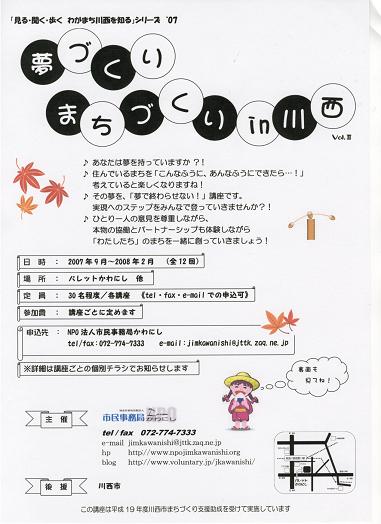 「見る・聞く・歩く わがまち川西を知る」シリーズ '07
夢づくり
まちづくり in 川西
Vol.Ⅱ
♪ あなたは夢を持っていますか?!
♪ 住んでいるまちを「こんなふうに、あんなふうにできたら…!」
考えていると楽しくなりますね!
♪ その夢を、「夢で終わらせない!」講座です。
実現へのステップをみんなで登っていきませんか?!
♪ ひとり一人の意見を尊重しながら、
本物の協働とパートナーシップも体験しながら
「わたしたち」のまちを一緒に創っていきましょう!
日 時 : 2007年9月~2008年2月 (全12回)
場 所 : パレットかわにし 他
定 員 : 30名程度/各講座 《tel・fax・e-mailでの申込可》
参加費 : 講座ごとに定めます
申込先 : NPO法人市民事務局かわにし
tel/fax:072-774-7333 e-mail:jimkawanishi@jttk.zaq.ne.jp
※詳細は講座ごとの個別チラシでお知らせします
裏面も
見てね!
主 催
市民事務局
tel / fax 072-774-7333
e-mail jimkawanishi@jttk.zaq.ne.jp
hp http://www.npojimkawanishi.org
blog http://www.voluntary.jp/jkawanishi/
後 援 川西市
この講座は平成19年度川西市まちづくり支援助成を受けて実施しています